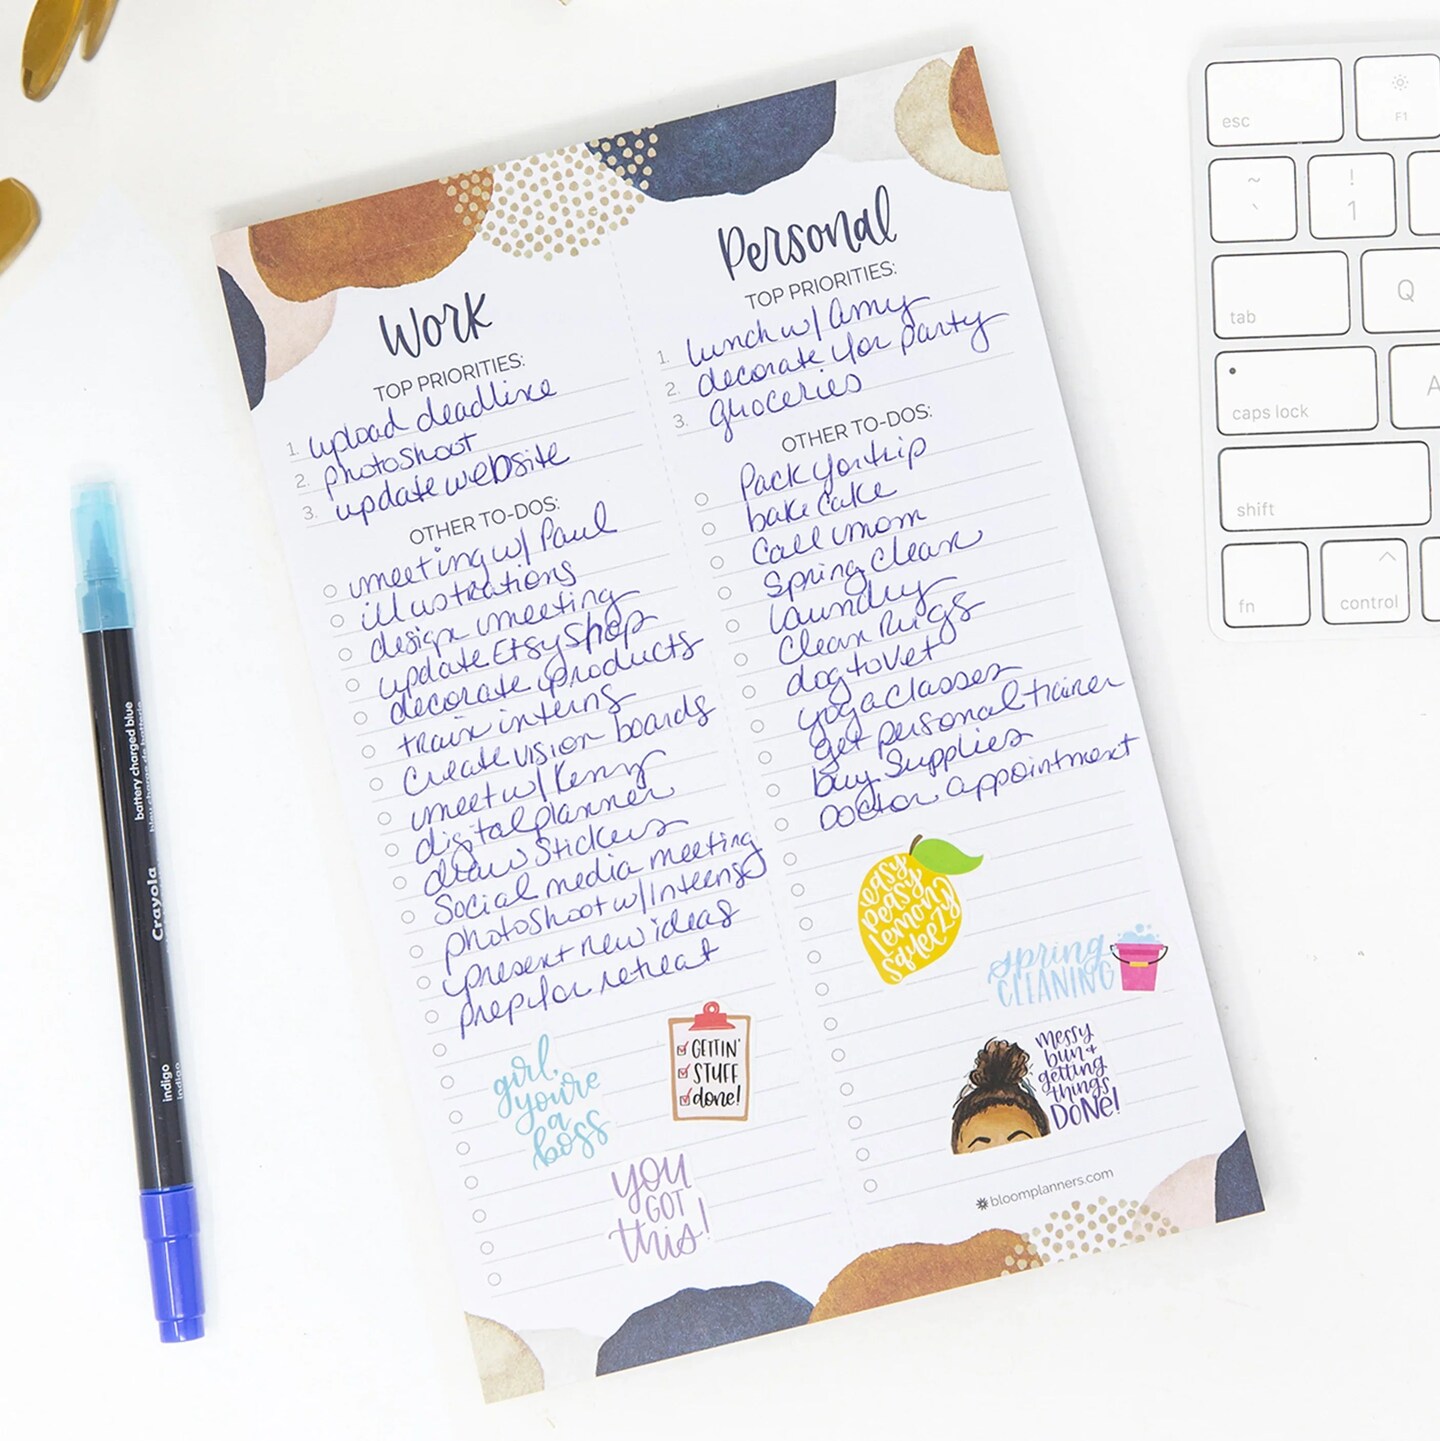 Work
TOP PRIORITIES:
1. upload deadline
2. photoshoot
3. update website
OTHER TO-DOS:
meeting w/ Paul
illustrations
design meeting
update Etsy Shop
decorate products
train interns
Create vision boards
meet w/ Kenny
digital planner
draw stickers
Social media meeting
photoshoot w/ Interns
present new ideas
prep for retreat
girl,
you're
a
boss
GETTIN'
STUFF
done!
YOU
GOT
this!
Personal
TOP PRIORITIES:
1. lunch w/ Amy
2. decorate for party
3. groceries
OTHER TO-DOS:
Pack for trip
bake cake
Call mom
Spring Clean
laundry
Clean Rugs
dog to vet
yoga classes
get personal trainer
buy Supplies
Doctor appointment
easy
peasy
lemony
squeezy
spring
CLEANING
messy
bun +
getting
things
DONE!
bloomplanners.com
battery charged blue
Crayola
indigo
indigo
esc
F1
~
`
!
1
tab
Q
caps lock
A
shift
fn
control